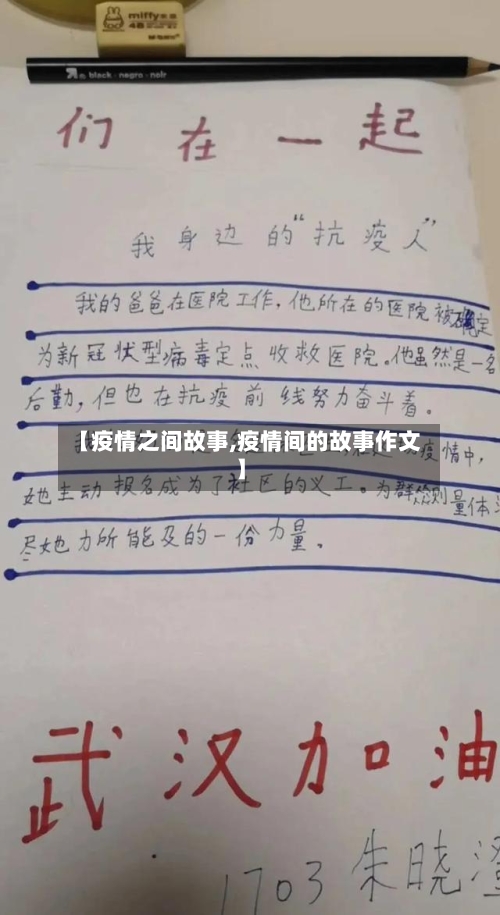 miffy米菲
4B
black · negro · noir
们在一起
我身边的“抗疫人”
我的爸爸在医院工作，他所在的医院被确定
为新冠状型病毒定点收救医院。他虽然是一名
后勤，但也在抗疫前线努力奋斗着。
【疫情之间故事,疫情间的故事作文
】
疫情中，
她主动报名成为了社区的义工。为群众测量体
尽她力所能及的一份力量。
武汉加油
1703 朱晓澄